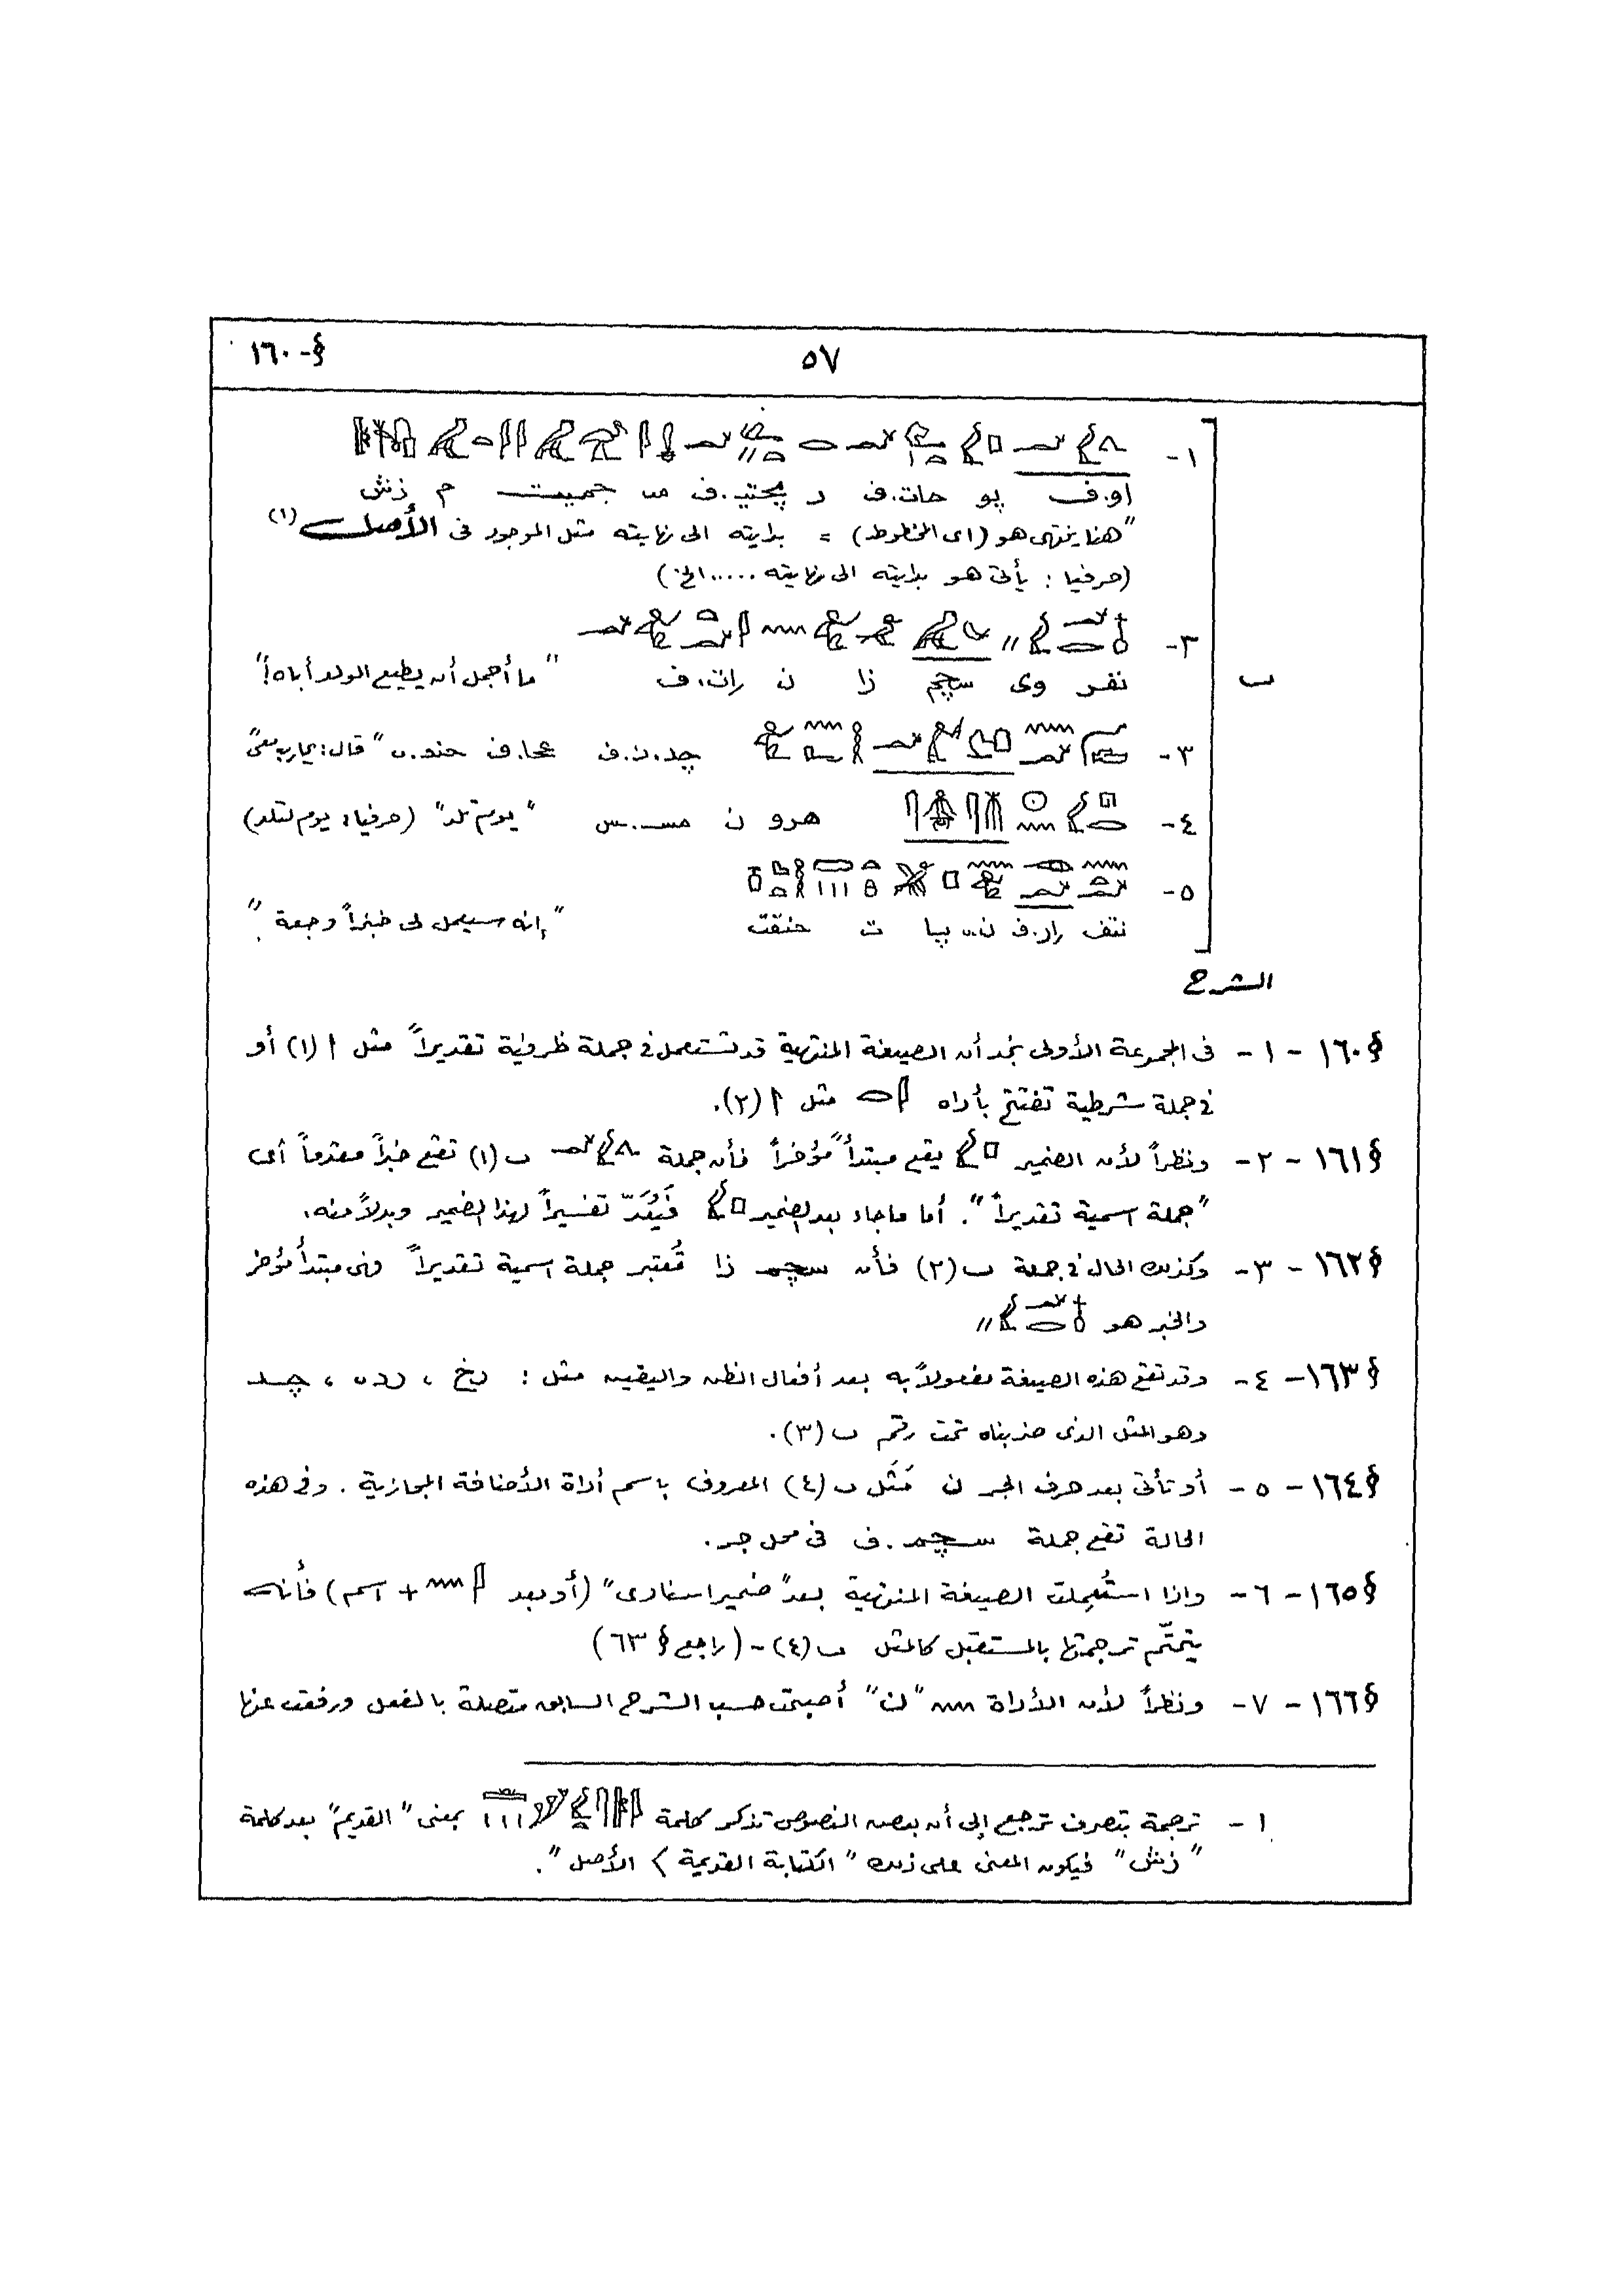 §-١٦٠
٥٧
١-
او.ف پو حات.ف ر پحتي.ف جميت م زنش
"هنا ينتهى هو (اى المخطوط) = بدايته الى نهايته مثل الموجود فى الأصل (١)
(حرفيا : يأتى هو بدايته الى نهايته ..... الخ)
ب
٢-
نفر وى سچم زا ن رات.ف "ما أجمل أن يطيع الولد أباه!"
٣- چد.ن.ف عحا.ف حنع "قال: يحارب معى"
٤- هرو ن مس.س "يوم تلد" (حرفيا: يوم لتلد)
٥-
نتف رار.ف حنقت "إنه سيعمل لى خبزاً وجعة".
الشرح
§١٦٠ - ١- فى المجموعة الأولى نجد أن الصيغة المنتهية قد تستعمل فى جملة ظرفية تقديراً مثل أ (١) أو
فى جملة شرطية تفتتح بأداه مثل أ (٢).
§١٦١ - ٢- ونظراً لأن الضمير يقع مبتدأ مؤخراً فأن جملة ب (١) تقع خبراً مقدماً أى
"جملة اسمية تقديراً". أما ماجاء بعد الضمير فَيُعَدّ تفسيراً لهذا الضمير وبدلاً منه.
§١٦٢ - ٣- وكذلك الحال فى جملة ب (٢) فأن سچم زا تُعتبر جملة اسمية تقديراً فهى مبتدأ مؤخر
والخبر هو
§١٦٣ - ٤- وقد تقع هذه الصيغة مفعولاً به بعد أفعال الظن واليقين مثل : رخ ، ، چد
وهو المثل الذى ضربناه تحت رقم ب (٣).
§١٦٤ - ٥- أو تأتى بعد حرف الجر ن مَثَل ب (٤) المعروف باسم أداة الأضافة المجازية . وفى هذه
الحالة تقع جملة سچم.ف فى محل جر.
§١٦٥ - ٦- واذا استُعمِلت الصيغة المنتهية بعد "ضمير اسنادى" (أو بعد + اسم) فأنه
يتحتّم ترجمتها بالمستقبل كالمثل ب (٤) - (راجع § ٦٣)
§١٦٦ - ٧- ونظراً لأن الأداة "ن" أصبحت حسب الشرح السابق متصلة بالفعل ورفعت عنها
١- ترجمة بتصرف ترجع إلى أن بعض النصوص تذكر كلمة بمعنى "القديم" بعد كلمة
"زنش" فيكون المعنى على ذلك "الكتابة القديمة > الأصل".